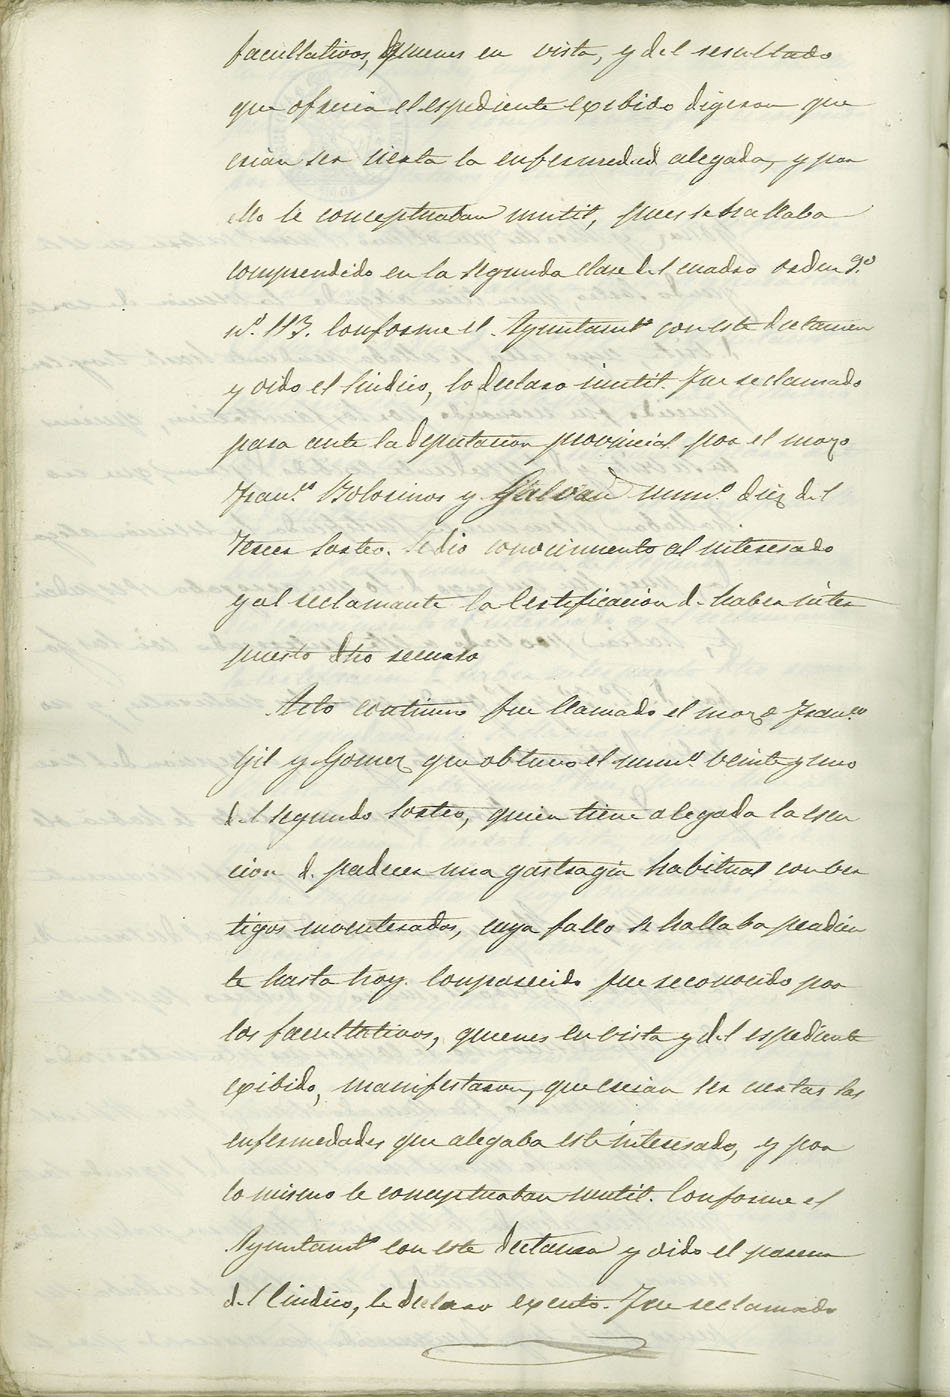 facultativos, quienes en vista, y del resultado
que ofrecia el espediente exibido digeron que
creian ser cierta la enfermedad alegada, y por
ello le conceptuaban inutil, pues se hallaba
comprendido en la segunda clase del cuadro orden 9.º
nº. 113. Conforme el Ayuntamtº con este dictamen
y oido el Sindico, lo declaró inutil. Fue reclamado
para ante la Deputacion provincial por el mozo
Franco. Bolorinos y Galvañ numº. diez del
tercer Sorteo. Se dio conocimiento al interesado
y al reclamante la Certificacion de haber inter
puesto dho recurso
Acto continuo fue llamado el mozo Franco.
Gil y Gomez que obtuvo el numº. veinte y uno
del segundo Sorteo, quien tiene alegada la esen
cion de padecer una gastragia habitual con ver
tigos inveterados, cuyo fallo se hallaba pendien
te hasta hoy. Conparecido fue reconocido por
los facultitivos, quienes en vista y del espediente
exibido, manifestaron, que creian ser ciertas las
enfermedades que alegaba este interesado, y por
lo mismo le conceptuaban inutil. Conforme el
Ayuntamtº con este dictamen y oido el parecer
del Sindico, le declaró exento. Fue reclamado